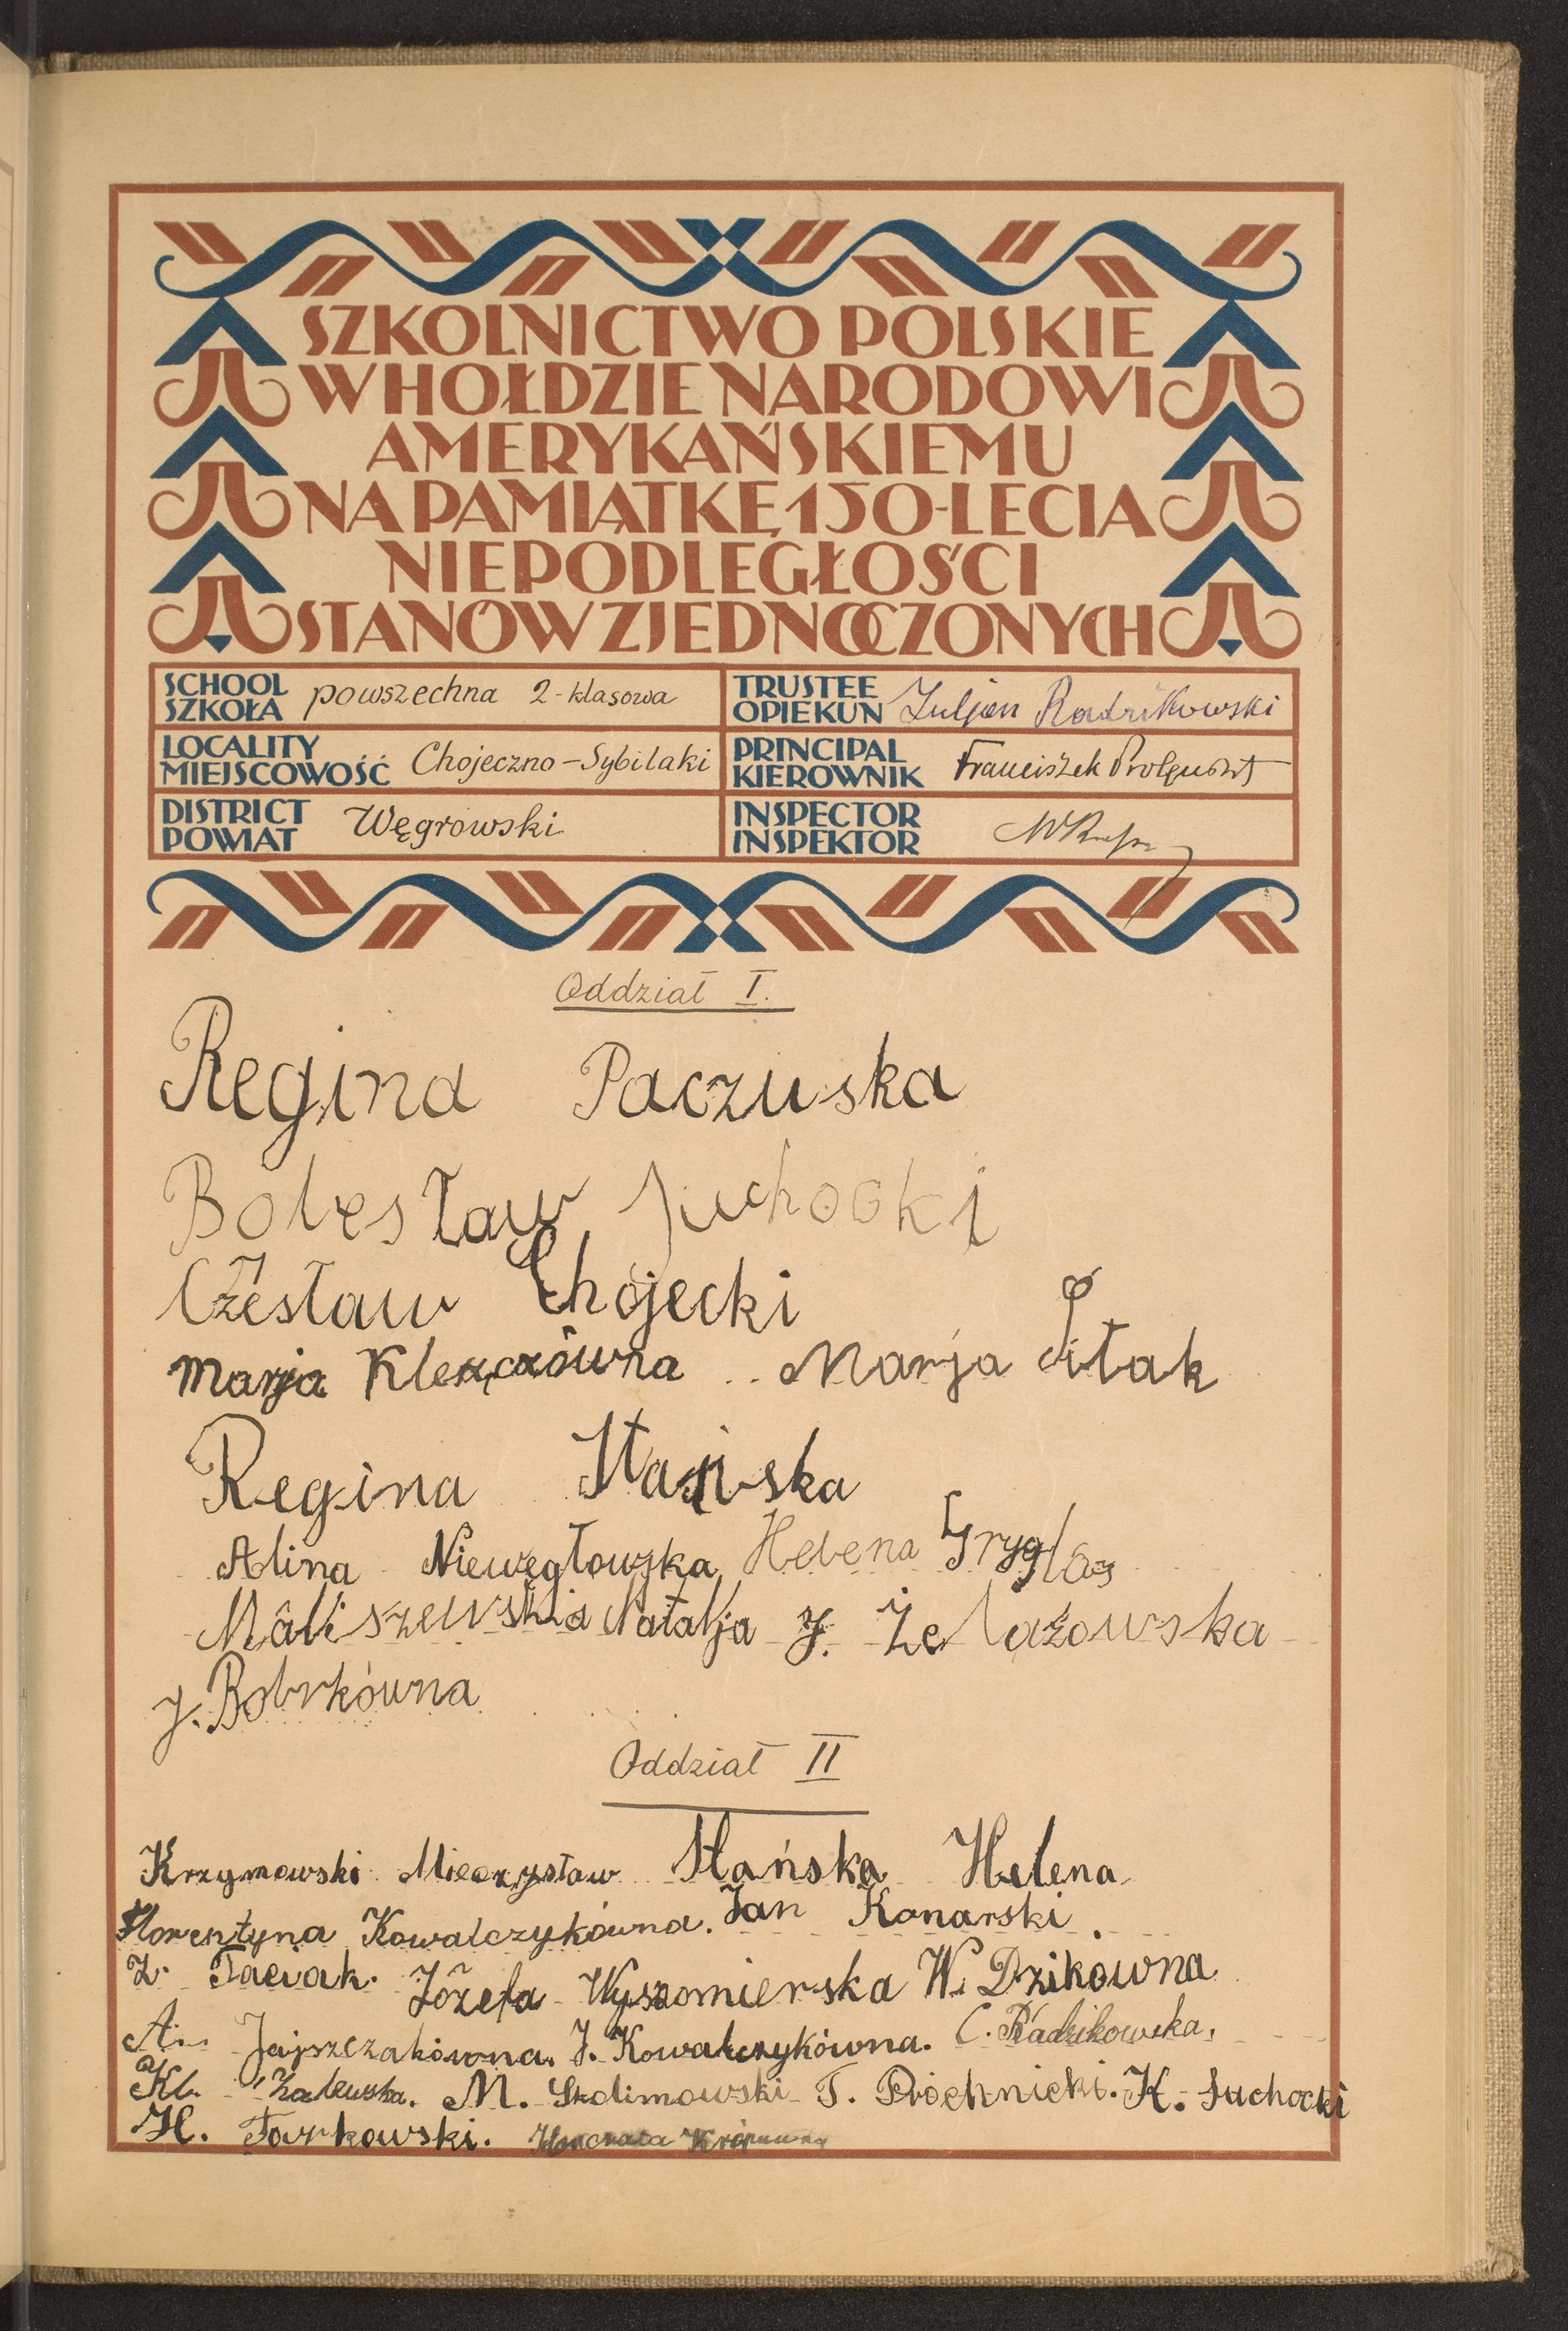 SZKOLNICTWO POLSKIE
W HOŁDZIE NARODOWI
AMERYKAŃSKIEMU
NA PAMIĄTKĘ 150-LECIA
NIEPODLEGŁOŚCI
STANÓW ZJEDNOCZONYCH
SCHOOL
SZKOŁA powszechna 2-klasowa
TRUSTEE
OPIEKUN Juljan Radzikowski
LOCALITY
MIEJSCOWOŚĆ Chojeczno-Sybilaki
PRINCIPAL
KIEROWNIK Franciszek
DISTRICT
POWIAT Węgrowski
INSPECTOR
INSPEKTOR
Oddział I.
Regina Paczuska
Bolesław Suchocki
Czesław Chojecki
Marja Kleszczówna Marja Sitak
Regina Stańska
Alina Niewęgłowska Helena Gryglas
Maliszewska Natalja J. Żelazowska
J. Bobrkówna
Oddział II
Krzymowski Mieczysław Stańska Helena
Florentyna Kowalczykówna. Jan Konarski
Z. Taciak. Józefa Wyszomierska W. Dzikówna
A. Jajszczakówna. J. Kowalczykówna. C. Radzikowska.
Kl. Zalewska. M. Skolimowski T. Próchnicki. K. Suchocki
H. Tarkowski.